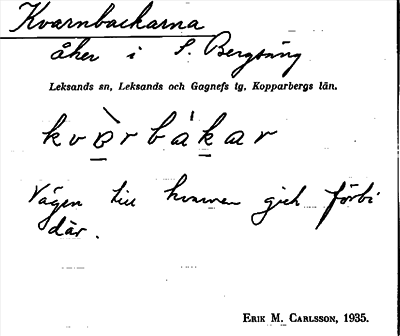 Kvarnbackarna
åker i S. Bergsäng
Leksands sn, Leksands och Gagnefs tg. Kopparbergs län.
kvɒ̀rbákar
Vägen till kvarnen gick förbi
där.
ERIK M. CARLSSON, 1935.